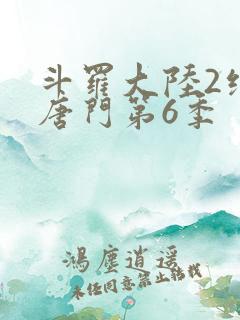 斗羅大陸2絕
唐門第6季
鴻塵逍遥
未经同意禁止转载